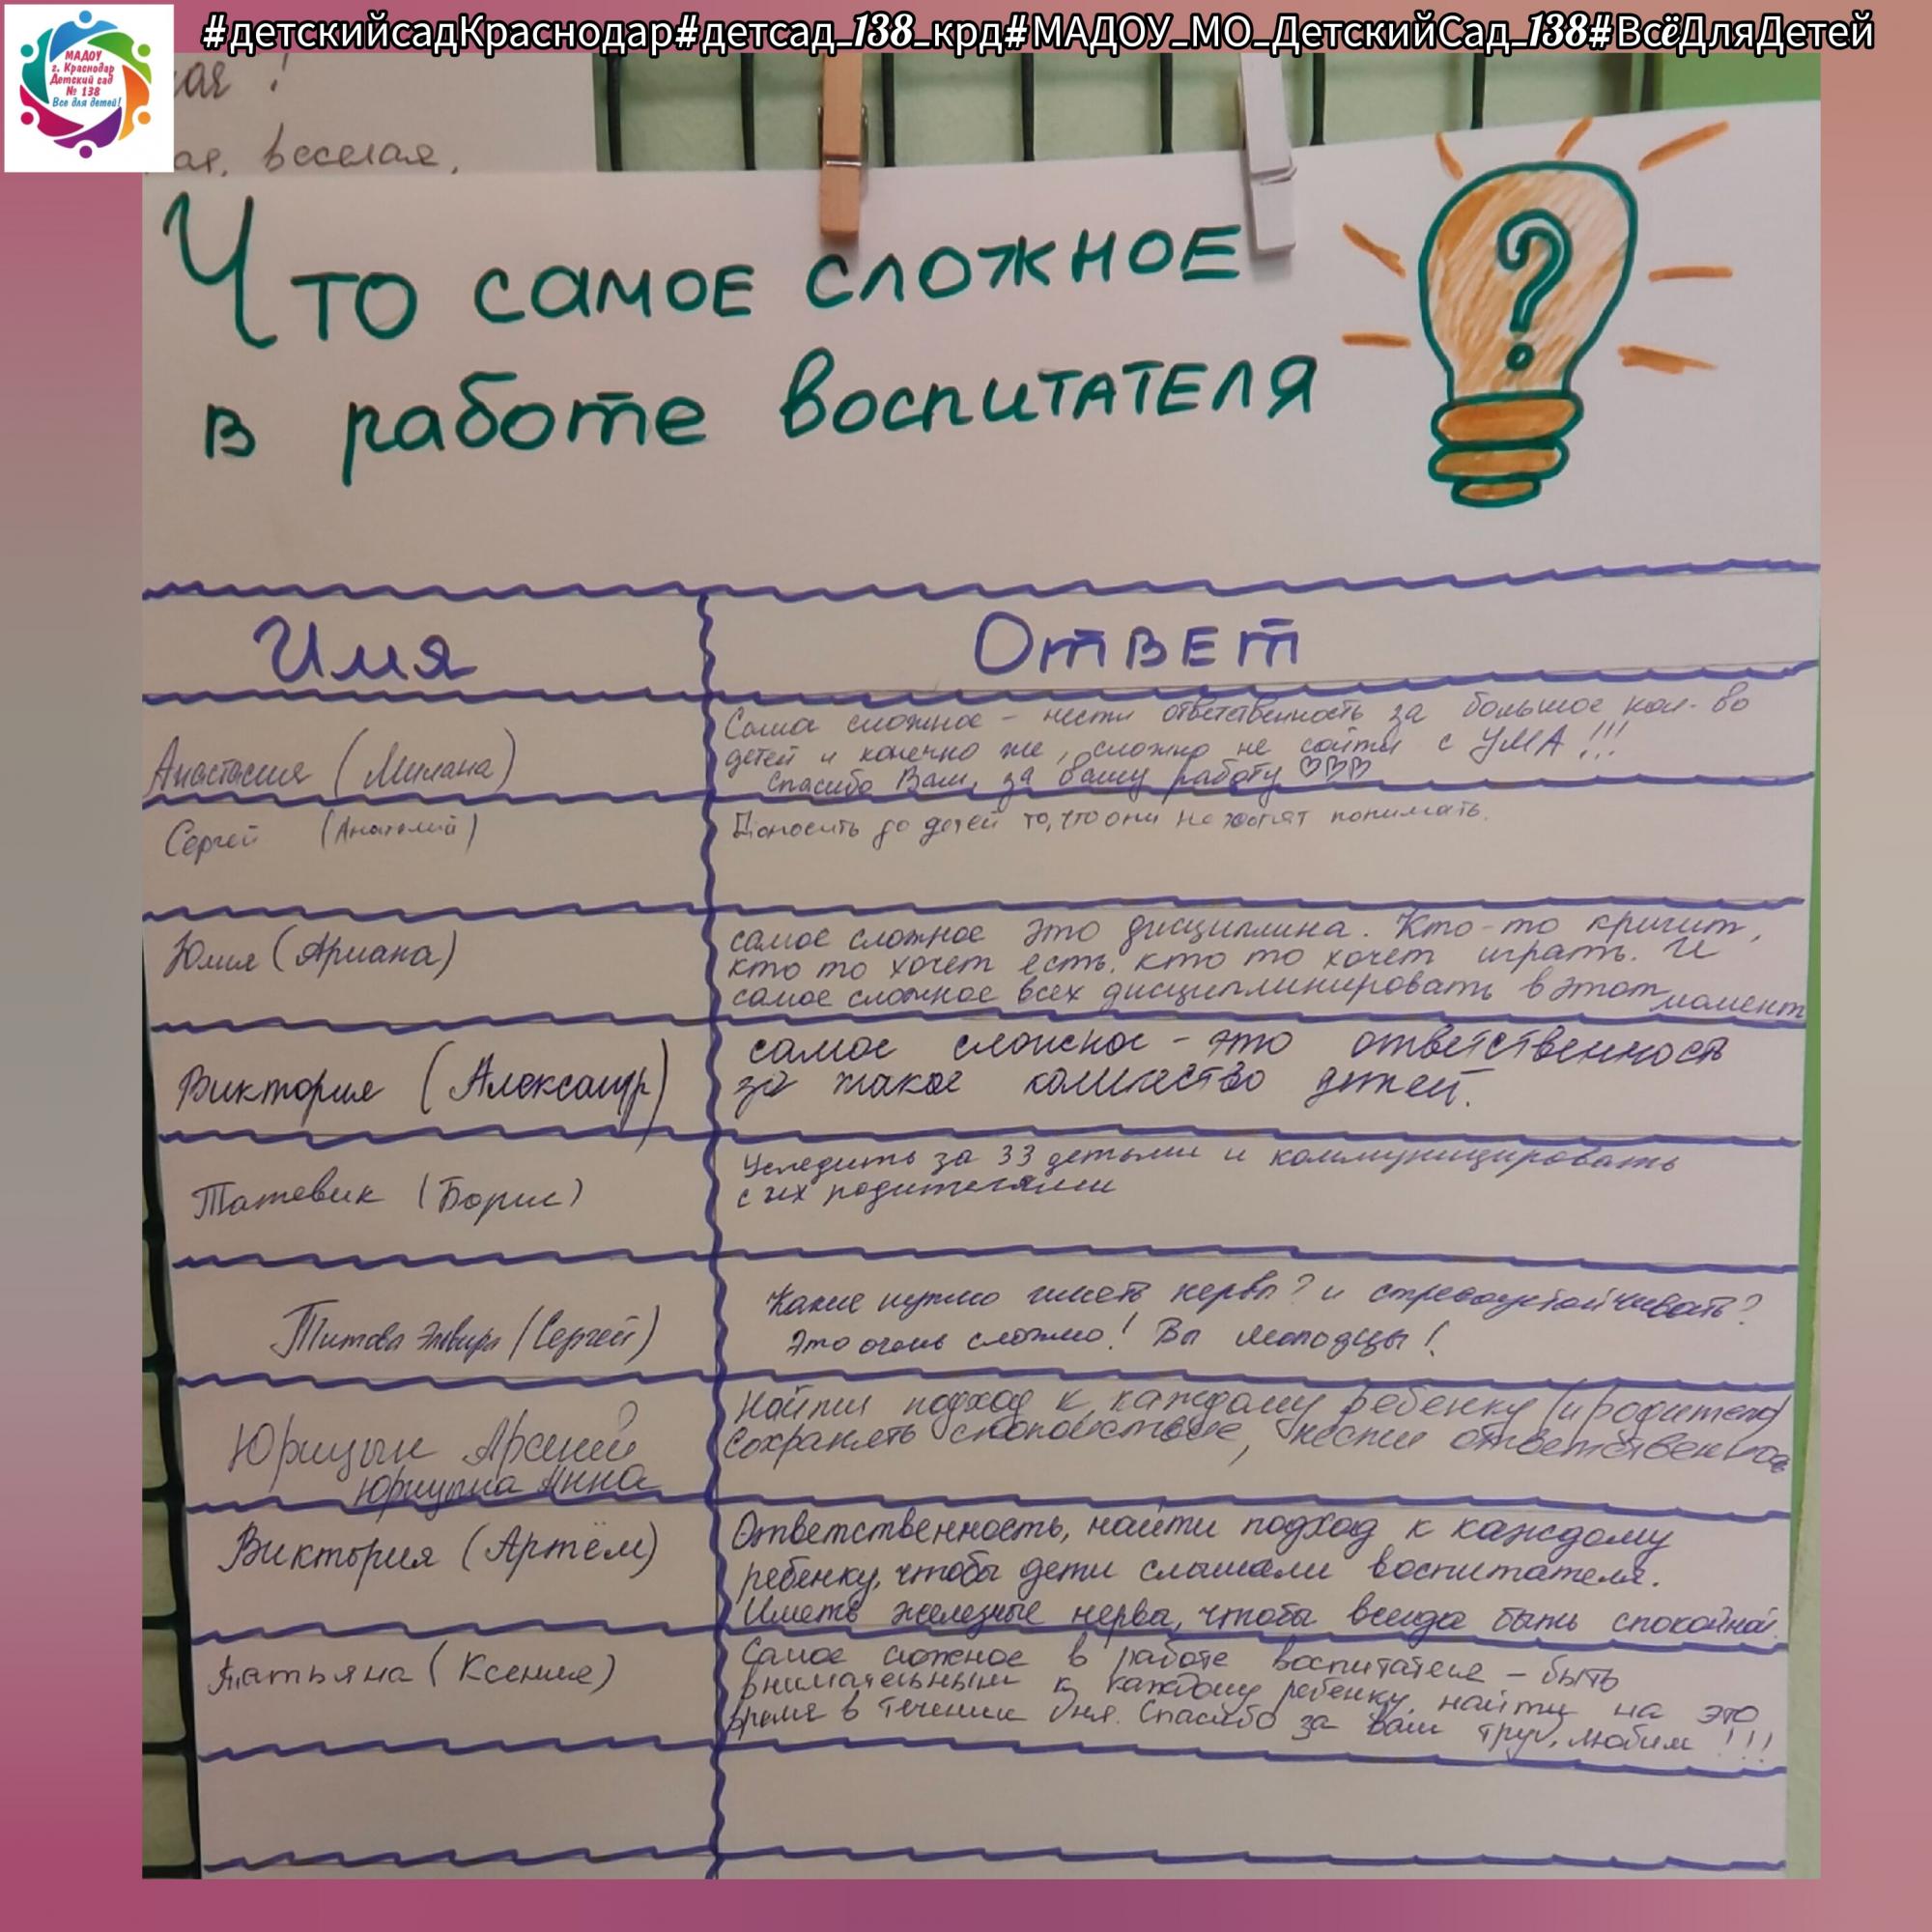 #детскийсадКраснодар#детсад_138_крд#МАДОУ_МО_ДетскийСад_138#ВсёДляДетей
МАДОУ
г. Краснодар
Детский сад
№ 138
Все для детей!
ая, веселая,
Что самое сложное
в работе воспитателя
?
Имя
Ответ
Анастасия (Милана)
Само сложное – нести ответственность за большое кол-во
детей и конечно же, сложно не сойти с УМА!!!
Спасибо Вам, за вашу работу ♡♡♡
Сергей (Анатолий)
Доносить до детей то, что они не хотят понимать.
Юлия (Ариана)
самое сложное это дисциплина. Кто-то кричит,
кто то хочет есть. кто то хочет играть. И
самое сложное всех дисциплинировать в этот момент
Виктория (Александр)
самое сложное – это ответственность
за такое количество детей.
Татевик (Борис)
Уследить за 33 детьми и коммуницировать
с их родителями
Титова Эльвира (Сергей)
Какие нужно иметь нервы? и
Это очень сложно! Вы молодцы!
Юрицын Арсений
Юрицына Анна
Найти подход к каждому ребенку (и родителю)
Сохранять спокойствие, нести
Виктория (Артём)
Ответственность, найти подход к каждому
ребенку, чтобы дети слышали воспитателя.
Иметь железные нервы, чтобы всегда быть спокойной.
Татьяна (Ксения)
Самое сложное в работе воспитателя – быть
внимательным к каждому ребенку, найти на это
время в течении дня. Спасибо за ваш труд, любим!!!